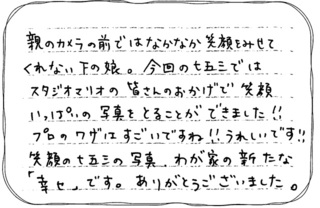 親のカメラの前ではなかなか笑顔をみせて
くれない下の娘。今回の七五三では
スタジオマリオの皆さんのおかげで笑顔
いっぱいの写真をとることができました!!
プロのワザはすごいですね!!うれしいです!!
笑顔の七五三の写真、わが家の新たな
「幸せ」です。ありがとうございました。